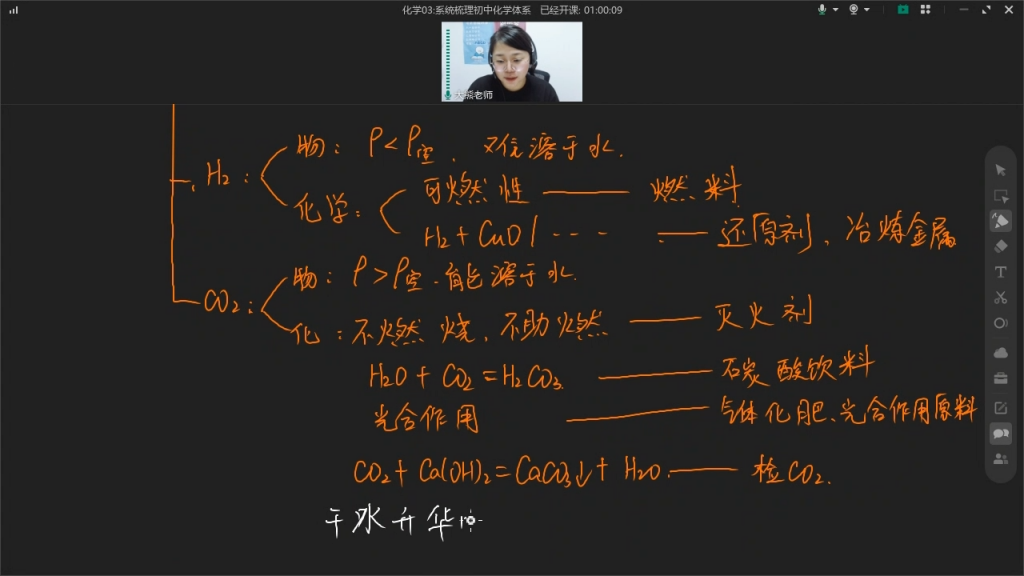 化学03:系统梳理初中化学体系 已经开课: 01:00:09
老师
H₂: 物: ρ<ρ空. 难溶于水.
化学: 可燃性 —— 燃料
H₂+CuO ---- —— 还原剂、冶炼金属
CO₂: 物: ρ>ρ空.能溶于水.
化: 不燃烧.不助燃 —— 灭火剂
H₂O + CO₂=H₂CO₃ —— 石炭酸饮料
光合作用 —— 气体化肥、光合作用原料
CO₂+Ca(OH)₂=CaCO₃↓+H₂O. —— 检CO₂.
干冰升华